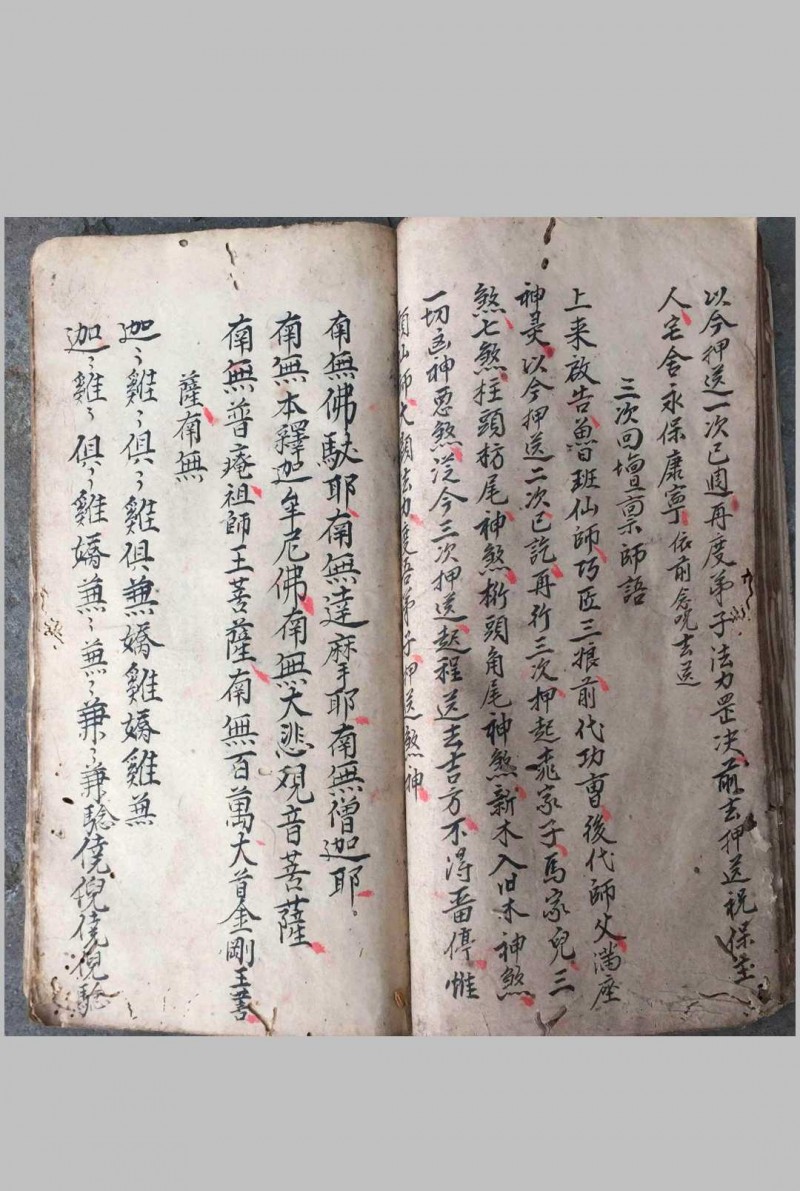 以今押送一次已週再度弟子法力罡决前去押送祝保主
人宅舍永保康寧依前念咒去送
三次回壇稟師語
上来啟告魯班仙師巧匠三娘前代功曹後代師父滿座
神灵以今押送二次已訖再行三次押起
家子馬家兒三
煞七煞柱頭枋尾神煞桁頭角尾神煞新木入旧木神煞
一切凶神惡煞從今三次押送起程送去吉方不得畱停惟
仙師大顯法力度吾弟子押送煞神
南無佛馱耶南無達摩耶南無僧迦耶
南無本釋迦牟尼佛南無大悲观音菩薩
南無普庵祖師王菩薩南無百萬大首金剛王菩
薩南無
迦〻雞〻俱〻雞俱無嬌雞嬌雞無
迦〻雞〻俱〻雞嬌無〻無〻兼〻兼驗倪倪驗